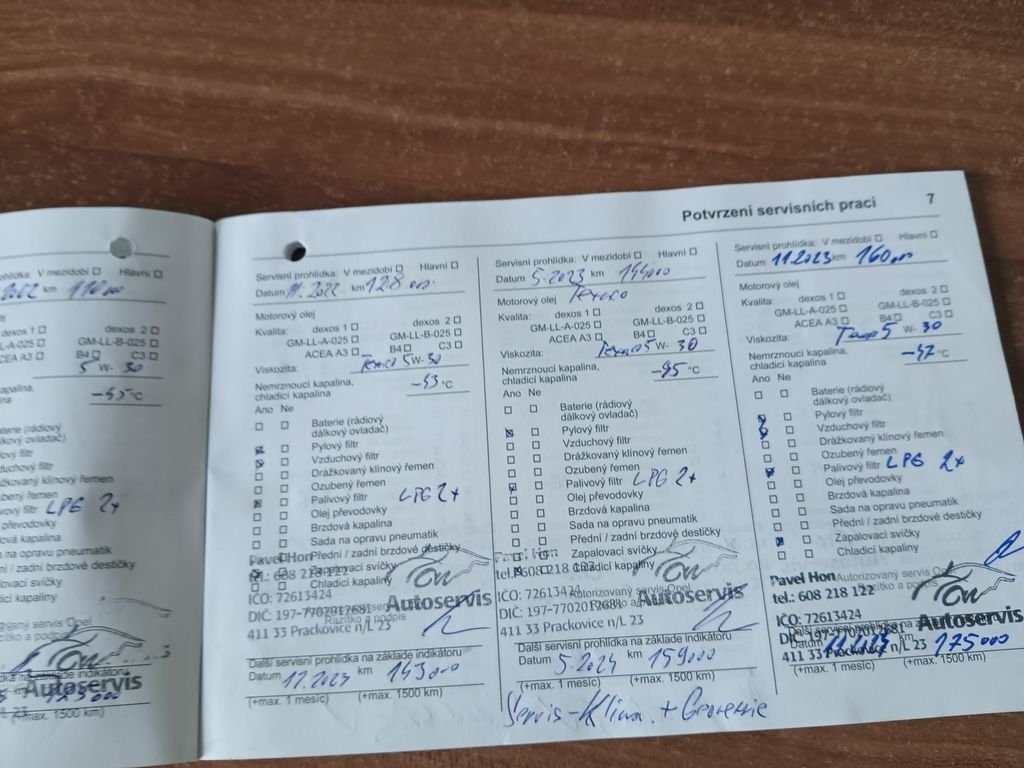 Potvrzení servisních prací 7
Hlavní
110000
dexos 2
GM-LL-B-025
B4 C3
5 W- 30
°C
vý filtr
LPG 2x
a na opravu pneumatik
Autoservis
max. 1500 km)
Servisní prohlídka: V mezidobí Hlavní
Datum 11.2022 km 128000
Motorový olej
Kvalita: dexos 1 dexos 2
GM-LL-A-025 GM-LL-B-025
ACEA A3 B4 C3
Viskozita: 5 W- 30
Nemrznoucí kapalina, chladicí kapalina °C
Ano Ne
Baterie (rádiový
dálkový ovladač)
Pylový filtr
Vzduchový filtr
Drážkovaný klínový řemen
Ozubený řemen
Palivový filtr LPG 2x
Olej převodovky
Brzdová kapalina
Sada na opravu pneumatik
Přední / zadní brzdové destičky
Zapalovací svíčky
Chladicí kapaliny
Pavel Hon
tel.: 608 218 122
IČO: 72613424
DIČ: 197-7702012681
411 33 Prackovice n/L 23
Autoservis
Další servisní prohlídka na základě indikátoru
Datum km 143000
(+max. 1 měsíc) (+max. 1500 km)
Servisní prohlídka: V mezidobí Hlavní
Datum 5.2023 km 144000
Motorový olej Texaco
Kvalita: dexos 1 dexos 2
GM-LL-A-025 GM-LL-B-025
ACEA A3 B4 C3
Viskozita: Texaco 5 W- 30
Nemrznoucí kapalina,
chladicí kapalina °C
Ano Ne
Baterie (rádiový
dálkový ovladač)
Pylový filtr
Vzduchový filtr
Drážkovaný klínový řemen
Ozubený řemen
Palivový filtr LPG 2x
Olej převodovky
Brzdová kapalina
Sada na opravu pneumatik
Přední / zadní brzdové destičky
Zapalovací svíčky
Chladicí kapaliny
tel.: 608 218 122
IČO: 72613424
DIČ: 197-7702012681
411 33 Prackovice n/L 23
Autoservis
Další servisní prohlídka na základě indikátoru
Datum 5.2024 km 159000
(+max. 1 měsíc) (+max. 1500 km)
Servis-Klima + Geometrie
Servisní prohlídka: V mezidobí Hlavní
Datum 11.2023 km 160000
Motorový olej
Kvalita: dexos 1 dexos 2
GM-LL-A-025 GM-LL-B-025
ACEA A3 B4 C3
Viskozita: 5 W- 30
Nemrznoucí kapalina,
chladicí kapalina °C
Ano Ne
Baterie (rádiový
dálkový ovladač)
Pylový filtr
Vzduchový filtr
Drážkovaný klínový řemen
Ozubený řemen
Palivový filtr LPG 2x
Olej převodovky
Brzdová kapalina
Sada na opravu pneumatik
Přední / zadní brzdové destičky
Zapalovací svíčky
Chladicí kapaliny
Pavel Hon Autorizovaný servis Opel
tel.: 608 218 122 Razítko a podpis
IČO: 72613424
Autoservis
DIČ: 197-7702012681
411 33 Prackovice n/L 23
km 175000
(+max. 1 měsíc) (+max. 1500 km)